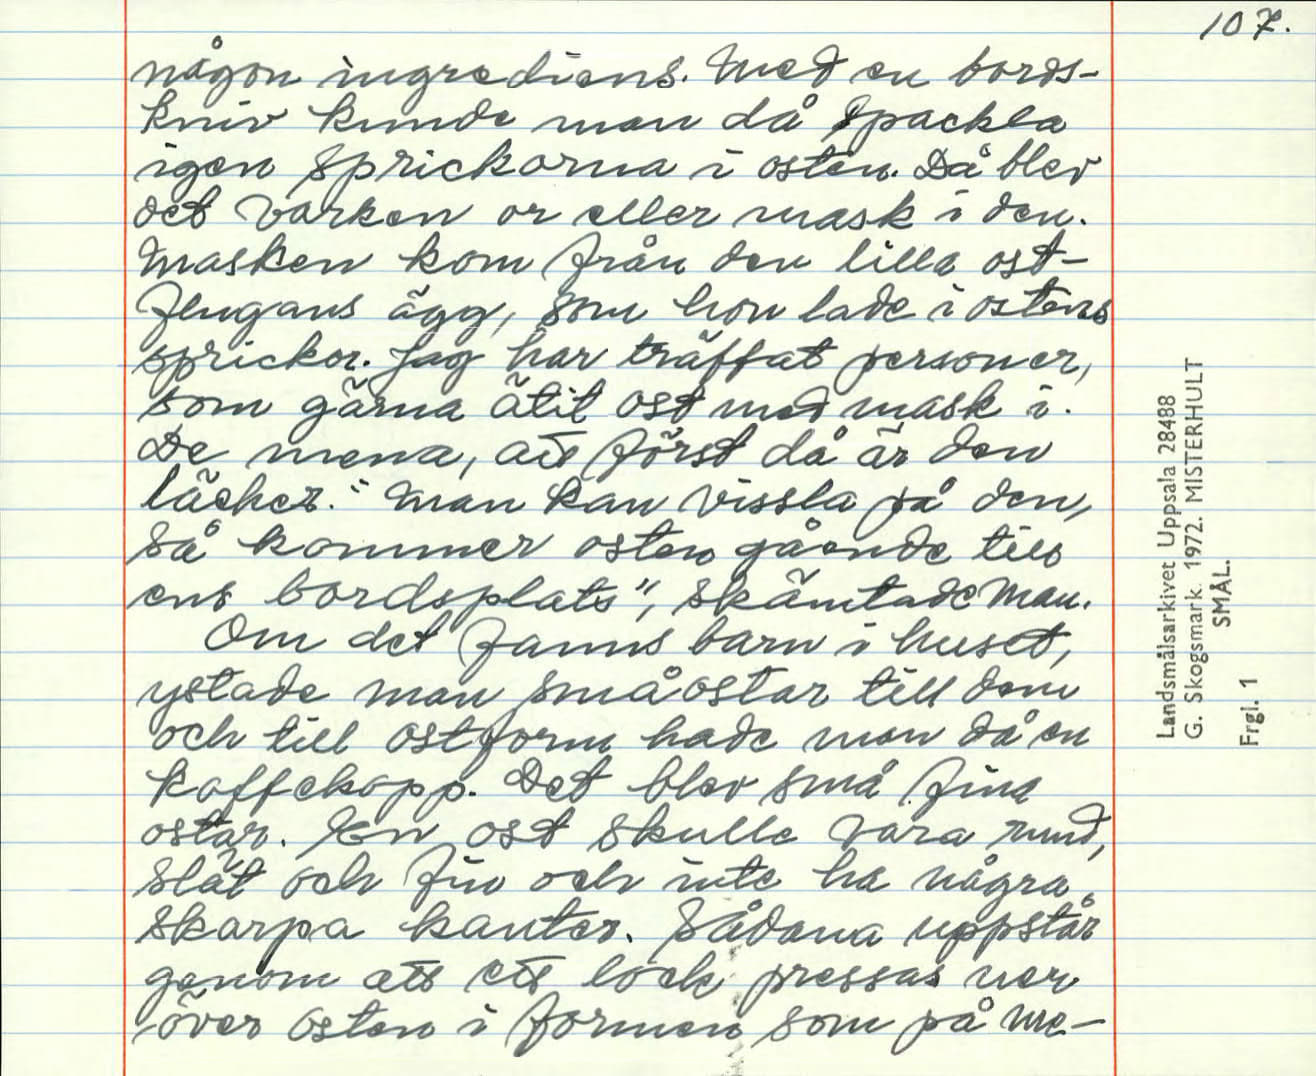 107.
någon ingrediens. Med en bords-
kniv kunde man då spackla
igen sprickorna i osten. Då blev
det varken or eller mask i den.
Masken kom från den lilla ost-
flugans ägg, som hon lade i ostens
sprickor. Jag har träffat personer,
som gärna ätit ost med mask i.
De mena, att först då är den
läcker. "Man kan vissla på den,
så kommer osten gående till
ens bordsplats", skämtade man.
Om det fanns barn i huset,
ystade man små ostar till dem
och till ostform hade man då en
kaffekopp. Det blev små fina
ostar. En ost skulle vara rund,
slät och fin och inte ha några
skarpa kanter. Sådana uppstår
genom att ett lock pressas ner
över osten i formen som på me-
Landsmålsarkivet Uppsala 28488
G. Skogsmark. 1972. MISTERHULT
SMÅL.
Frgl. 1